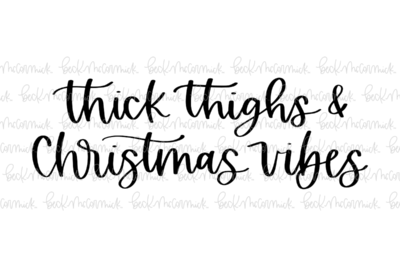 thick thighs &
Christmas vibes